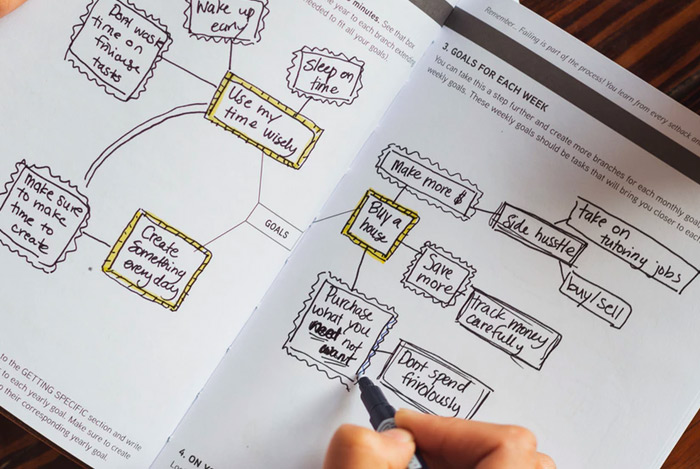 minutes. See that box
the year to each branch extending
needed to fit all your goals!
Dont wast
time on
tasks
wake up
early
Sleep on
time
Use my
time wisely
make sure
to make
time to
create
Create
Something
everyday
GOALS
to the GETTING SPECIFIC section and write
to each yearly goal. Make sure to create
their corresponding yearly goal.
Remember... Failing is part of the process! You learn from every setback
3. GOALS FOR EACH WEEK
You can take this a step further and create more branches for each monthly goal
weekly goals. These weekly goals should be tasks that will bring you closer to each
Make more $
Buy a
house
Side husstle
take on
tutoring jobs
buy/sell
Save
more
track money
carefully
Purchase
what you
need not
want
Dont spend
frivolously
4. ON